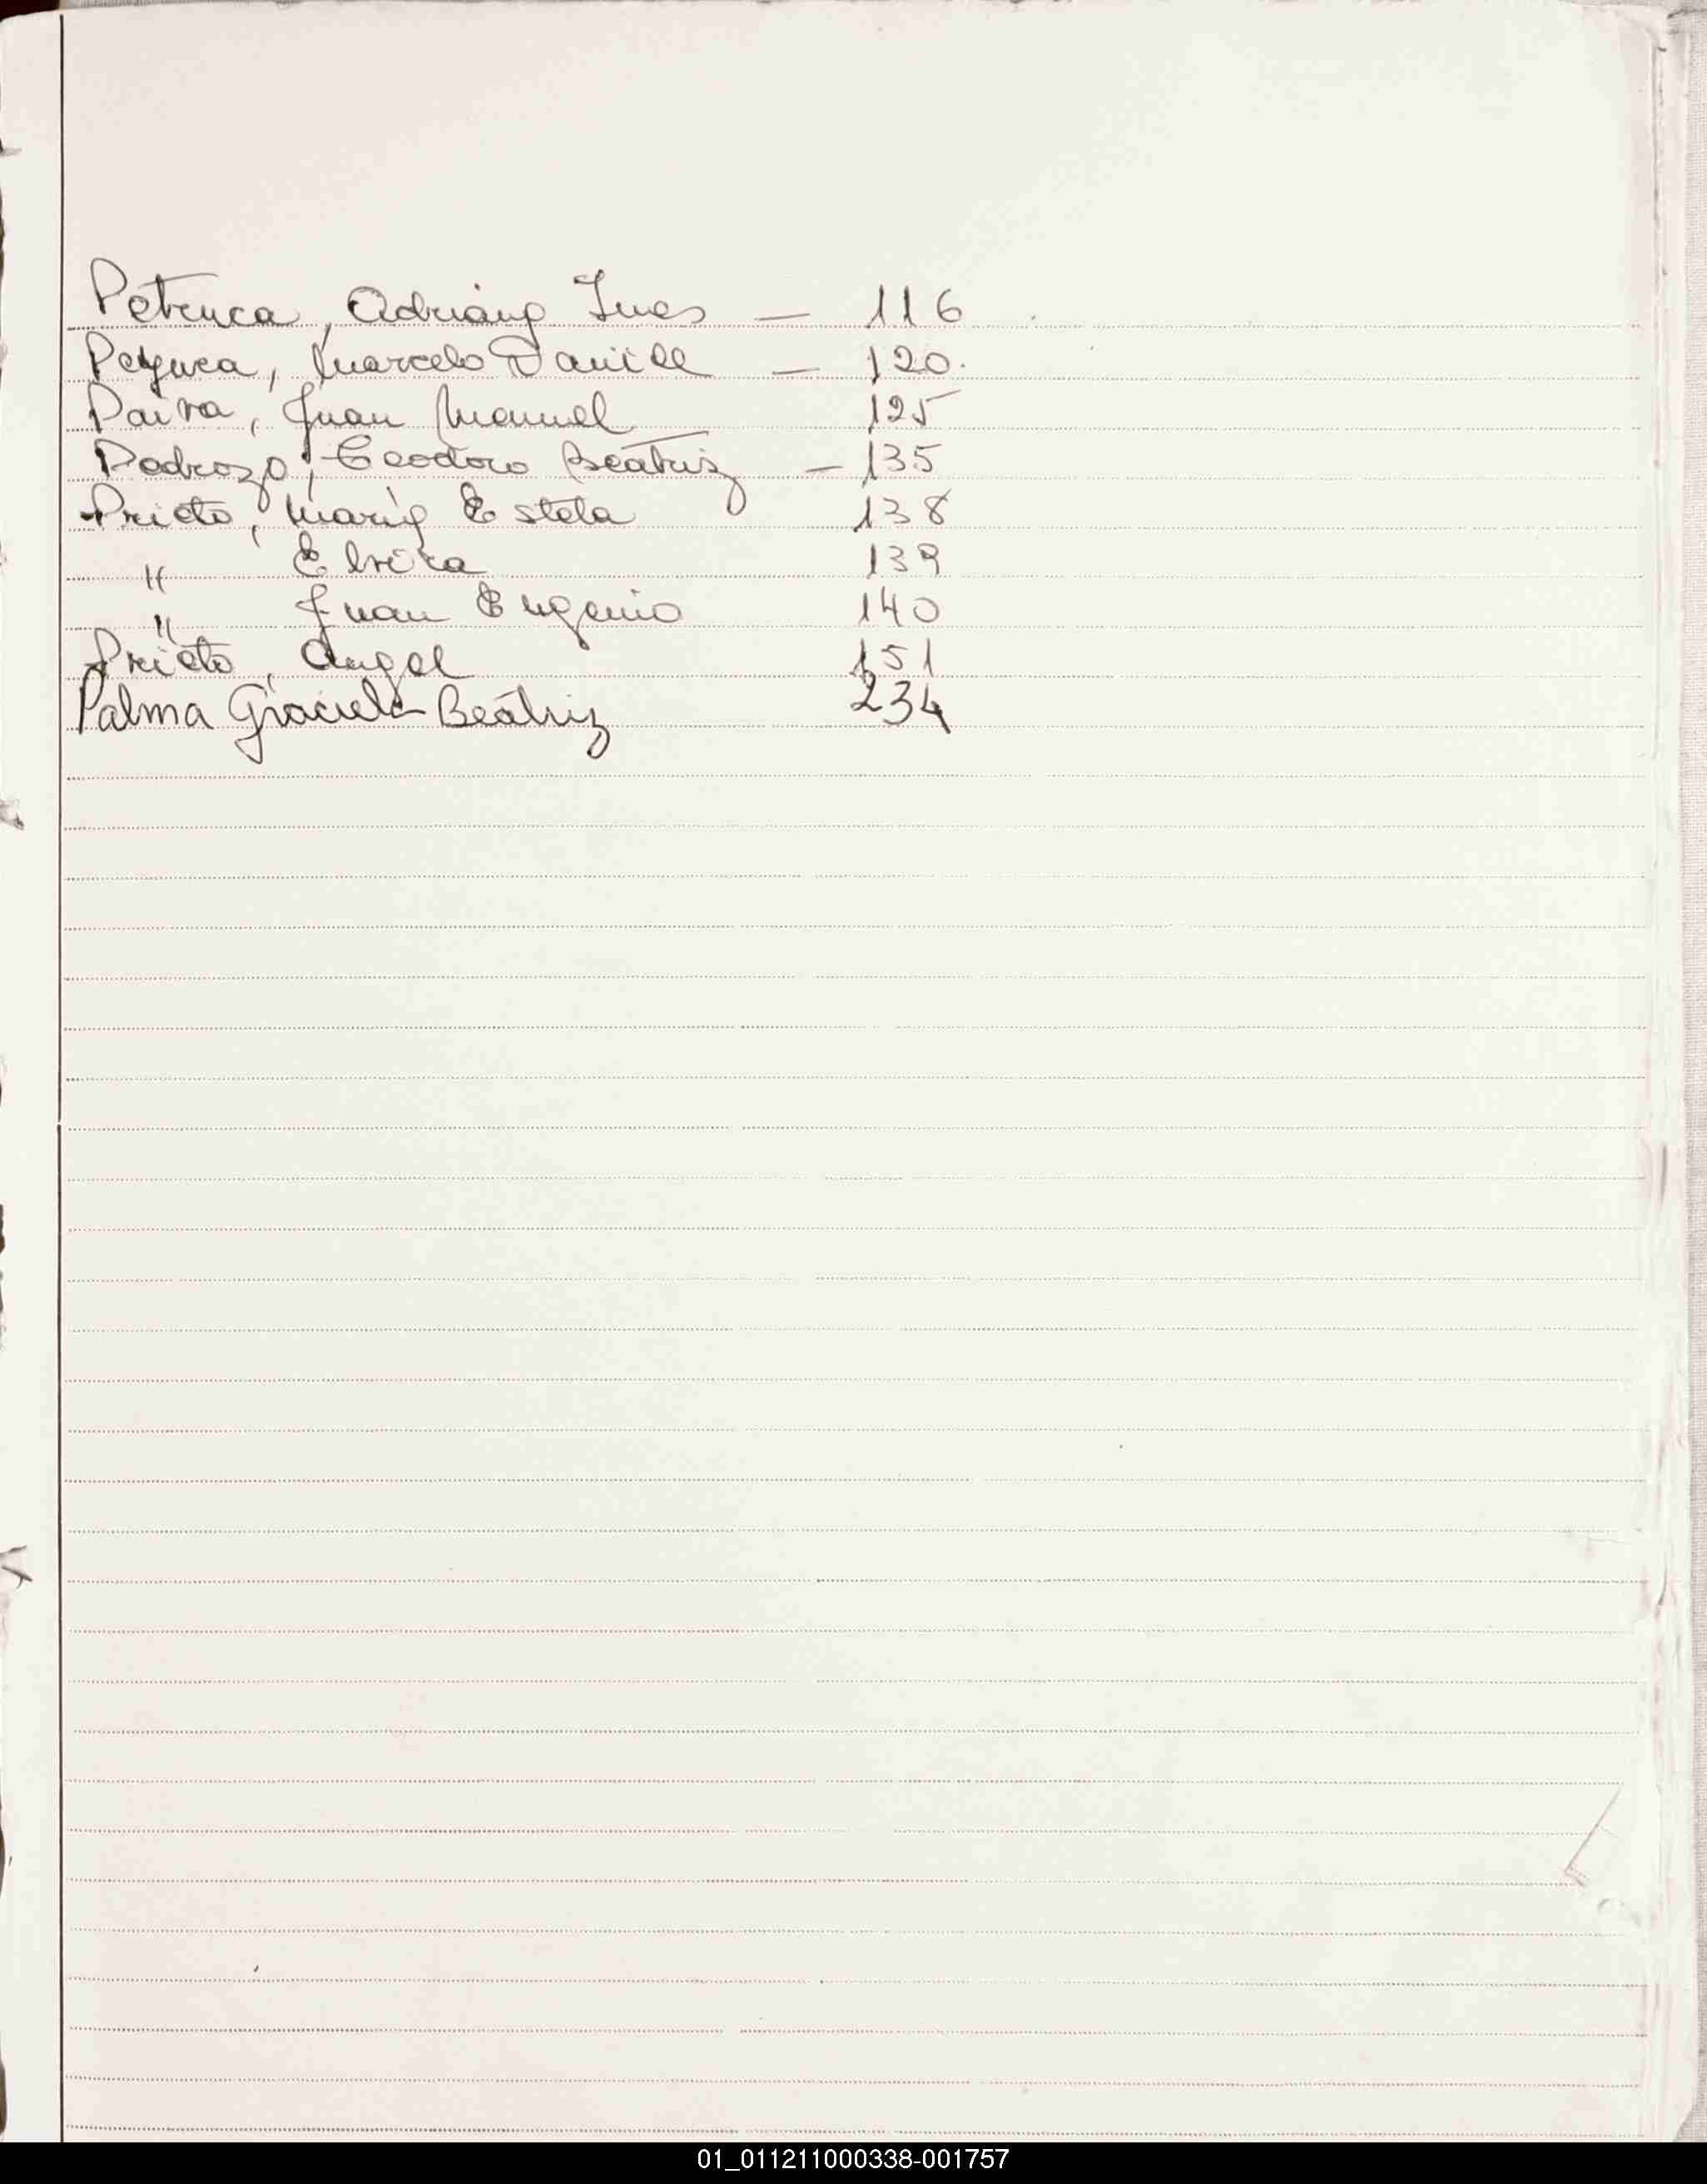 Petruca, Adriana Ines — 116
Petruca, Marcelo Daniel — 120.
Paiva, Juan Manuel 125
Pedrozo, Teodoro Beatriz — 135
Prieto, María Estela 138
" Elvira 139
" Juan Eugenio 140
Prieto, Angel 151
Palma Graciela Beatriz 234
01_011211000338-001757